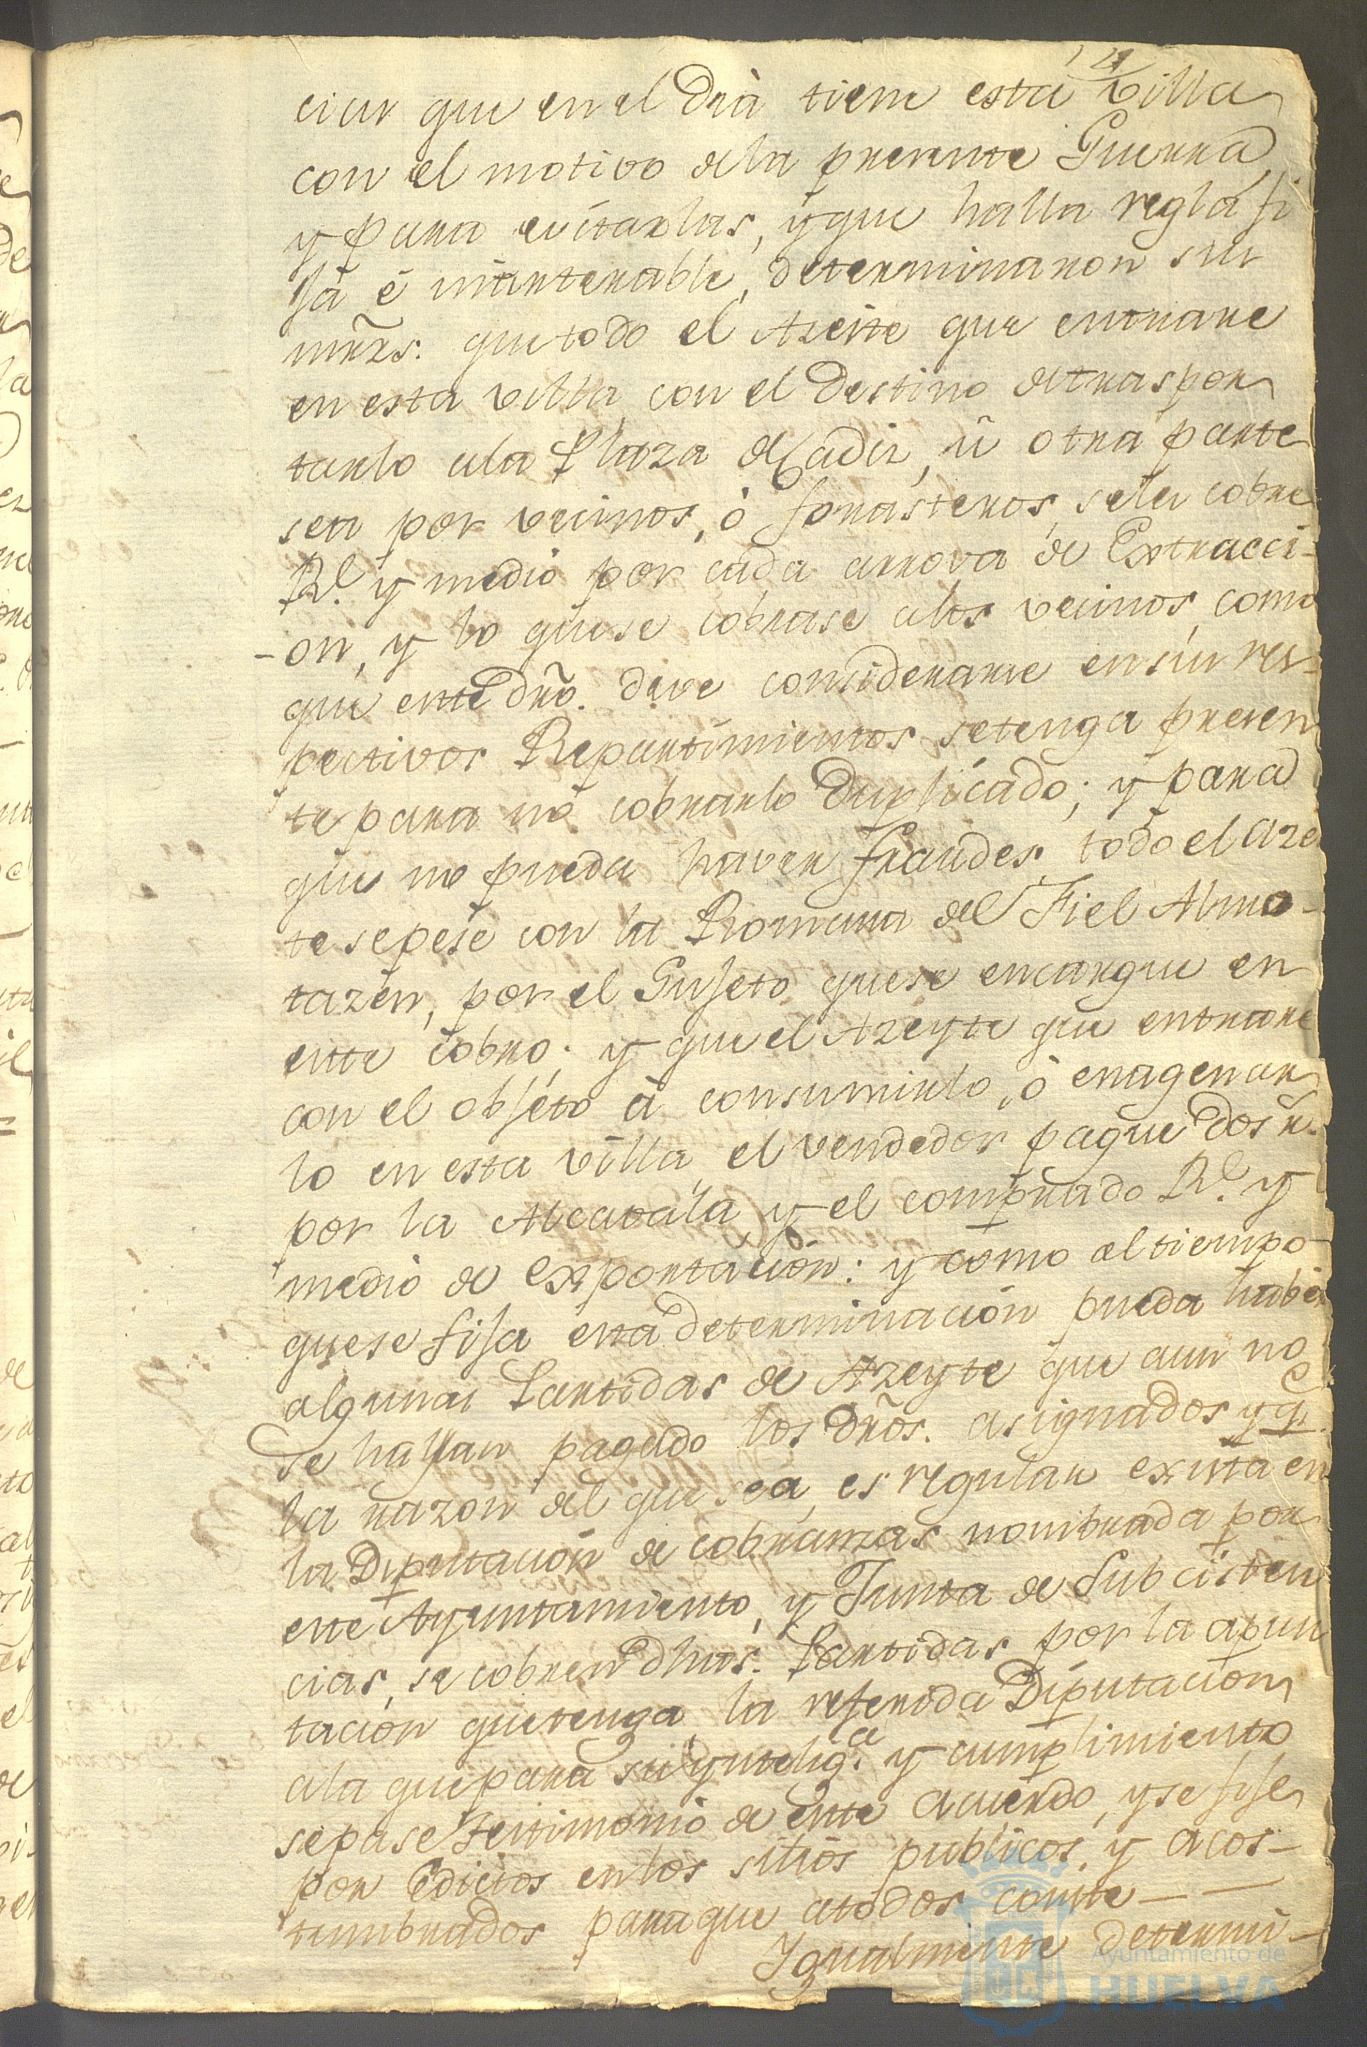 121
ciar que en el dia tiene esta villa
con el motivo dela presente Guerra
y para evitarlas, y que halla regla fi
ja é inalterable, determinaron sus
mrzs. que todo el Azeite que entrare
en esta villa con el destino detraspor
tarlo ala Plaza de Cadiz, ù otra parte
sea por vecinos, ò forasteros, seles cobre
Rl. y medio por cada arrova de Extracci-
on, y lo quese cobrase alos vecinos, como
que este dro. deve considerarse en sus res-
pectivos Repartimientos setenga presen
te para no cobrarlo duplicado; y para
que no pueda haver fraudes, todo el aze
te sepese con la Romana del Fiel Almo-
tazen, por el Sujeto quese encargue en
este cobro; y que el Azeyte que entrare
con el objéto à consumirlo, ò enagenar
lo en esta villa, el vendedor pague dos r.
por la Alcavala, y el comprado Rl. y
medio de exportacion: y como al tiempo
quese fija esta determinación pueda haber
algunas Partidas de Azeyte que aun no
se hayan pagado los dros. asignados y qe.
la razon del que sea, es regular exista en
la Diputación de cobranzas nombrada por
este Ayuntamiento, y Junta de Subcisten
cias, se cobren dhas. Partidas por la apun
tación quetenga la referida Diputacion
ala que para su Yntelig.a y cumplimiento
sepase testimonio de este acuerdo, y se fije
por Edictos en los sitios publicos, y acos-
tumbrados paraque atodos conste
Igualmente determi-
Ayuntamiento de
HUELVA